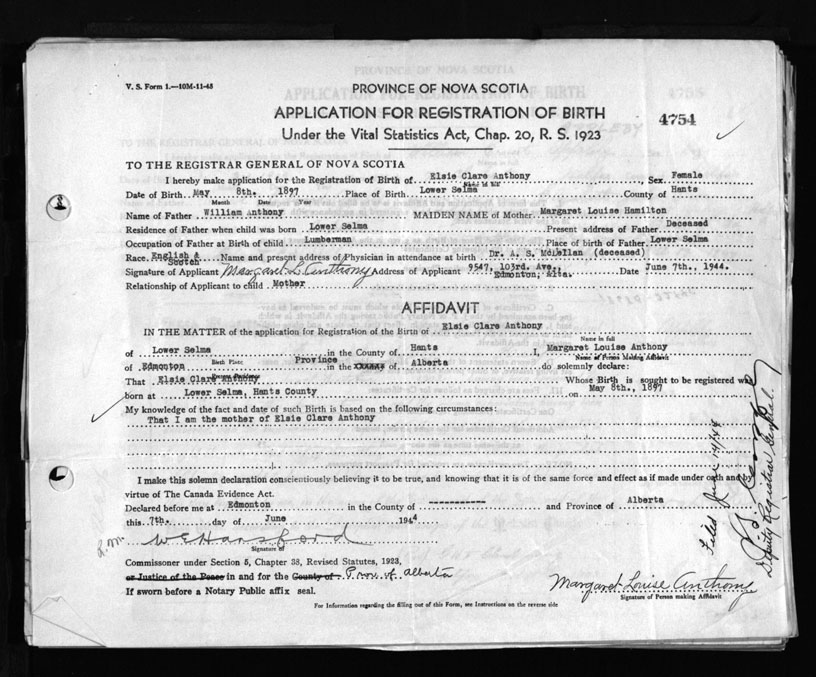 V. S. Form 1.—10M-11-43
PROVINCE OF NOVA SCOTIA
APPLICATION FOR REGISTRATION OF BIRTH
4754
Under the Vital Statistics Act, Chap. 20, R. S. 1923
TO THE REGISTRAR GENERAL OF NOVA SCOTIA
I hereby make application for the Registration of Birth of Elsie Clare Anthony, Sex Female
Name in full
Date of Birth May 8th. 1897 Place of Birth Lower Selma County of Hants
Month Date Year
Name of Father William Anthony MAIDEN NAME of Mother Margaret Louise Hamilton
Residence of Father when child was born Lower Selma Present address of Father Deceased
Occupation of Father at Birth of child Lumberman Place of birth of Father Lower Selma
Race English & Scotch Name and present address of Physician in attendance at birth Dr. A. S. McLellan (deceased)
Signature of Applicant Margaret L. Anthony Address of Applicant 9547, 103rd. Ave., Edmonton, Alta. Date June 7th., 1944.
Relationship of Applicant to child Mother
AFFIDAVIT
IN THE MATTER of the application for Registration of the Birth of Elsie Clare Anthony
Name in full
of Lower Selma in the County of Hants I, Margaret Louise Anthony
Birth Place Name of Person Making Affidavit
of Edmonton Province in the of Alberta do solemnly declare:
That Elsie Clare Anthony Whose Birth is sought to be registered was
born at Lower Selma, Hants County on May 8th., 1897
My knowledge of the fact and date of such Birth is based on the following circumstances:
That I am the mother of Elsie Clare Anthony
I make this solemn declaration conscientiously believing it to be true, and knowing that it is of the same force and effect as if made under oath and
virtue of The Canada Evidence Act.
Declared before me at Edmonton in the County of ----------- and Province of Alberta
this 7th. day of June 1944
W E Hansford
Signature of
Commissioner under Section 5, Chapter 38, Revised Statutes, 1923,
or Justice of the Peace in and for the County of Prov. of Alberta
If sworn before a Notary Public affix seal.
Margaret Louise Anthony
Signature of Person making Affidavit
For Information regarding the filling out of this Form, see Instructions on the reverse side
Filed June 14/44
Deputy Registrar General.